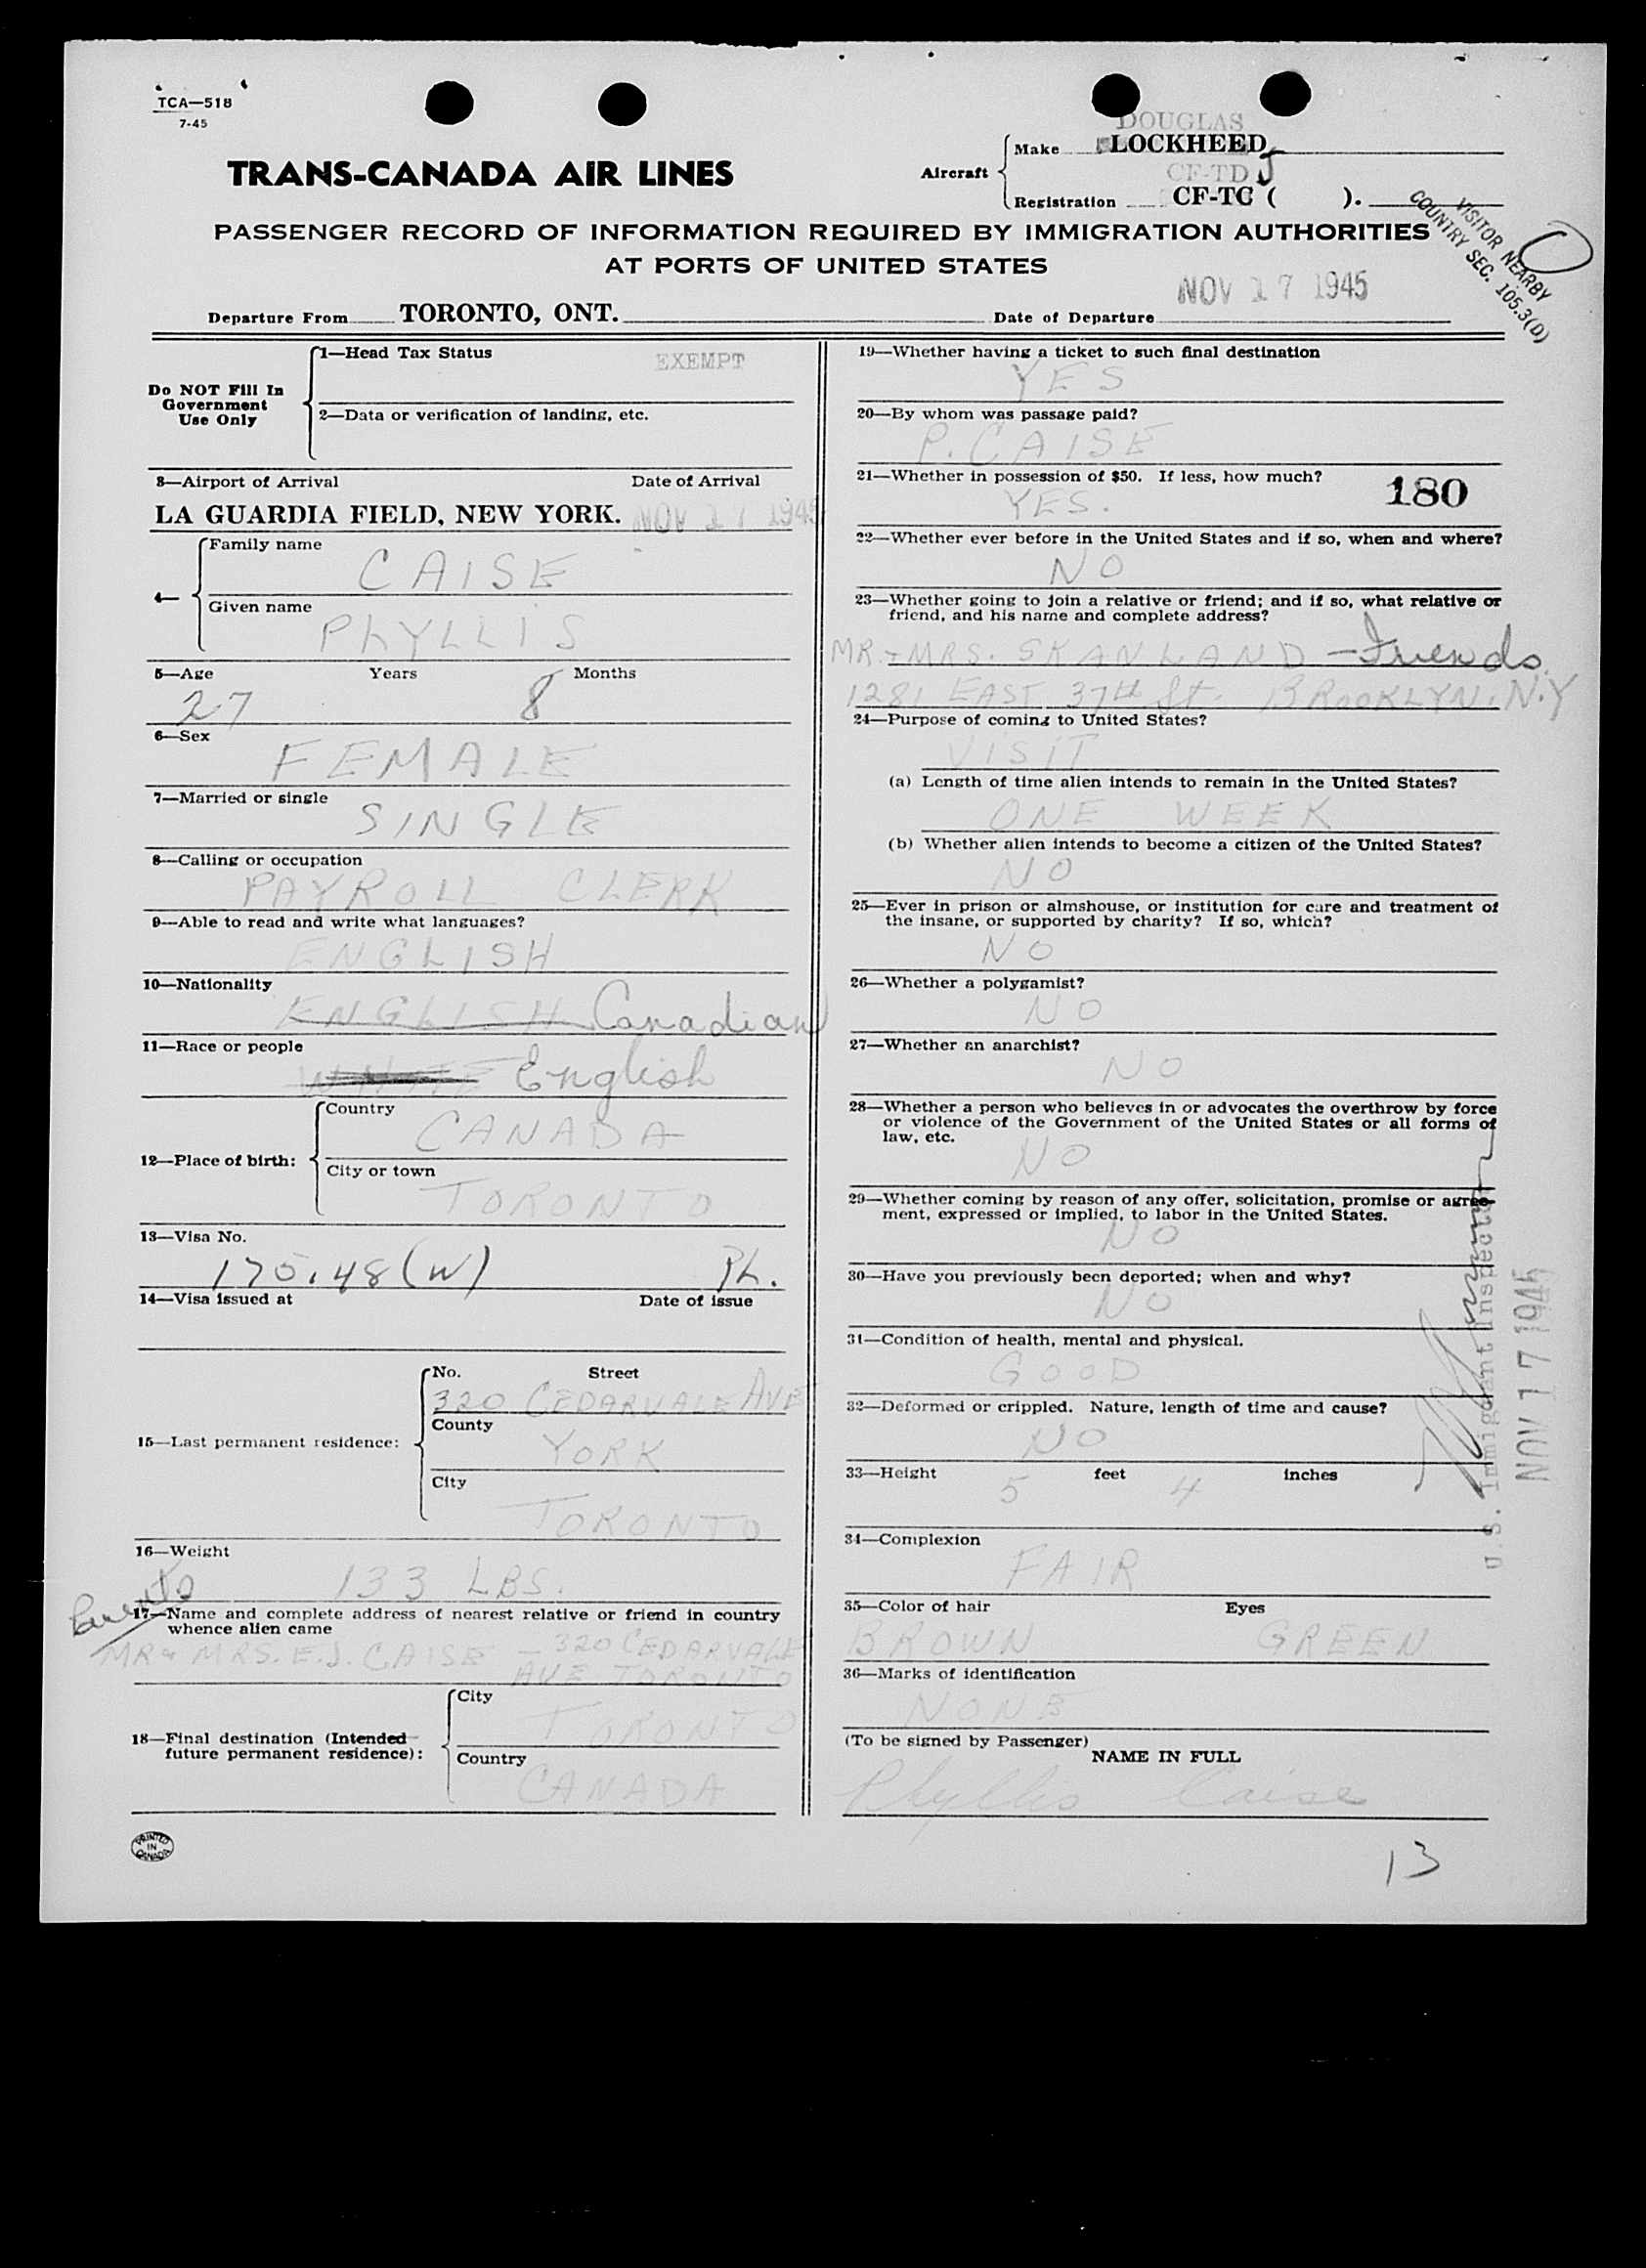 TCA—518
7-45
TRANS-CANADA AIR LINES
DOUGLAS
Aircraft
Make LOCKHEED
CF-TD J
Registration CF-TC ( ).
PASSENGER RECORD OF INFORMATION REQUIRED BY IMMIGRATION AUTHORITIES
AT PORTS OF UNITED STATES
VISITOR NEARBY
COUNTRY SEC. 105.3(D)
NOV 17 1945
Departure From TORONTO, ONT. Date of Departure
Do NOT Fill In
Government
Use Only
1—Head Tax Status EXEMPT
2—Data or verification of landing, etc.
3—Airport of Arrival Date of Arrival
LA GUARDIA FIELD, NEW YORK. NOV 17 1945
4—
Family name
CAISE
Given name
PhYLLIS
5—Age Years Months
27 8
6—Sex
FEMALE
7—Married or single
SINGLE
8—Calling or occupation
PAYROLL CLERK
9—Able to read and write what languages?
ENGLISH
10—Nationality
ENGLISH Canadian
11—Race or people
WHITE English
12—Place of birth:
Country
CANADA
City or town
TORONTO
13—Visa No.
175.48(W) Ph.
14—Visa issued at Date of issue
15—Last permanent residence:
No. Street
320 CEDARVALE AVE
County
YORK
City
TORONTO
16—Weight
133 LBS.
Parents
17—Name and complete address of nearest relative or friend in country
whence alien came
MR & MRS. E.J. CAISE — 320 CEDARVALE
AVE TORONTO
18—Final destination (Intended
future permanent residence):
City
TORONTO
Country
CANADA
PRINTED
IN
CANADA
19—Whether having a ticket to such final destination
YES
20—By whom was passage paid?
P. CAISE
21—Whether in possession of $50. If less, how much?
YES.
180
22—Whether ever before in the United States and if so, when and where?
NO
23—Whether going to join a relative or friend; and if so, what relative or
friend, and his name and complete address?
MR. + MRS. SKANLAND — Friends
1281 EAST 37th St. BROOKLYN. N.Y
24—Purpose of coming to United States?
VISIT
(a) Length of time alien intends to remain in the United States?
ONE WEEK
(b) Whether alien intends to become a citizen of the United States?
NO
25—Ever in prison or almshouse, or institution for care and treatment of
the insane, or supported by charity? If so, which?
NO
26—Whether a polygamist?
NO
27—Whether an anarchist?
NO
28—Whether a person who believes in or advocates the overthrow by force
or violence of the Government of the United States or all forms of
law, etc.
NO
29—Whether coming by reason of any offer, solicitation, promise or agree-
ment, expressed or implied, to labor in the United States.
NO
30—Have you previously been deported; when and why?
NO
31—Condition of health, mental and physical.
GOOD
32—Deformed or crippled. Nature, length of time and cause?
NO
33—Height feet inches
5 4
34—Complexion
FAIR
35—Color of hair Eyes
BROWN GREEN
36—Marks of identification
NONE
(To be signed by Passenger)
NAME IN FULL
Phyllis Caise
U.S. Immigrant Inspector
NOV 17 1945
13